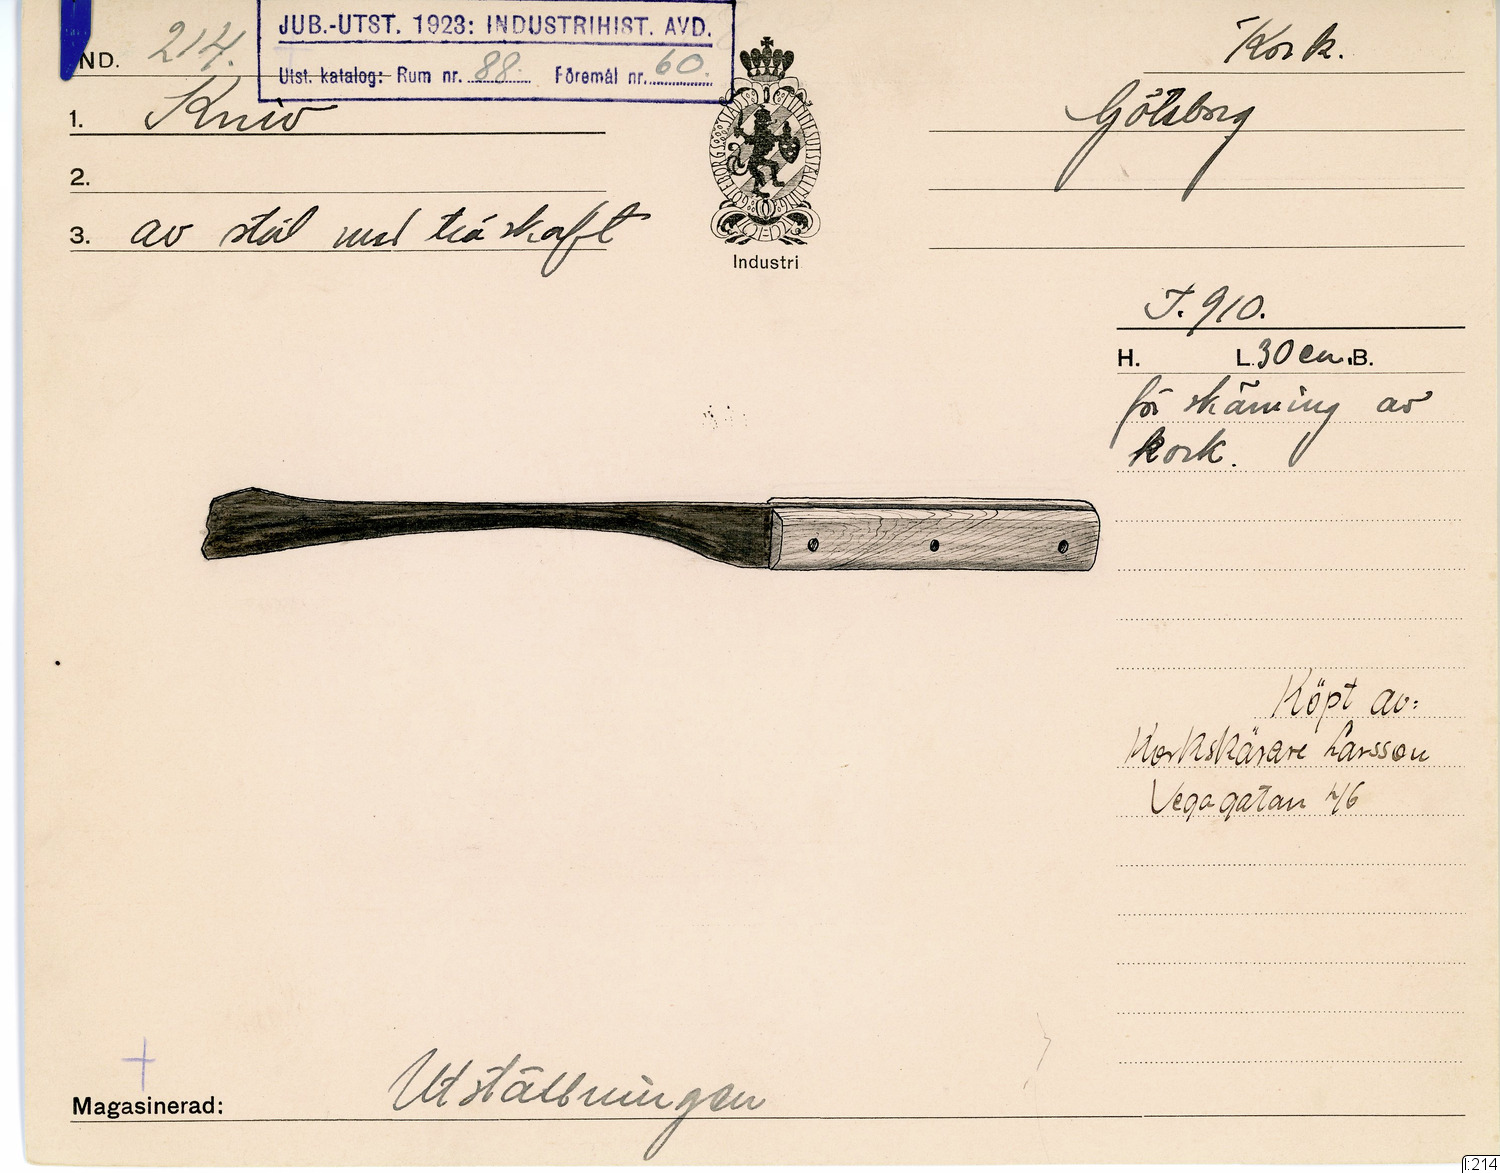 JUB.-UTST. 1923: INDUSTRIHIST. AVD.
Utst. katalog: Rum nr. 88. Föremål nr. 60.
IND. 214.
Kork.
1. Kniv
Göteborg
2.
3. av stål med träskaft
GÖTEBORGS STADS MINNESUTSTÄLLNING
Industri
I. 910.
H. L. 30 cm. B.
för skärning av
kork.
Köpt av:
Korkskärare Larsson
Vegagatan 46
Magasinerad: Utställningen
I:214